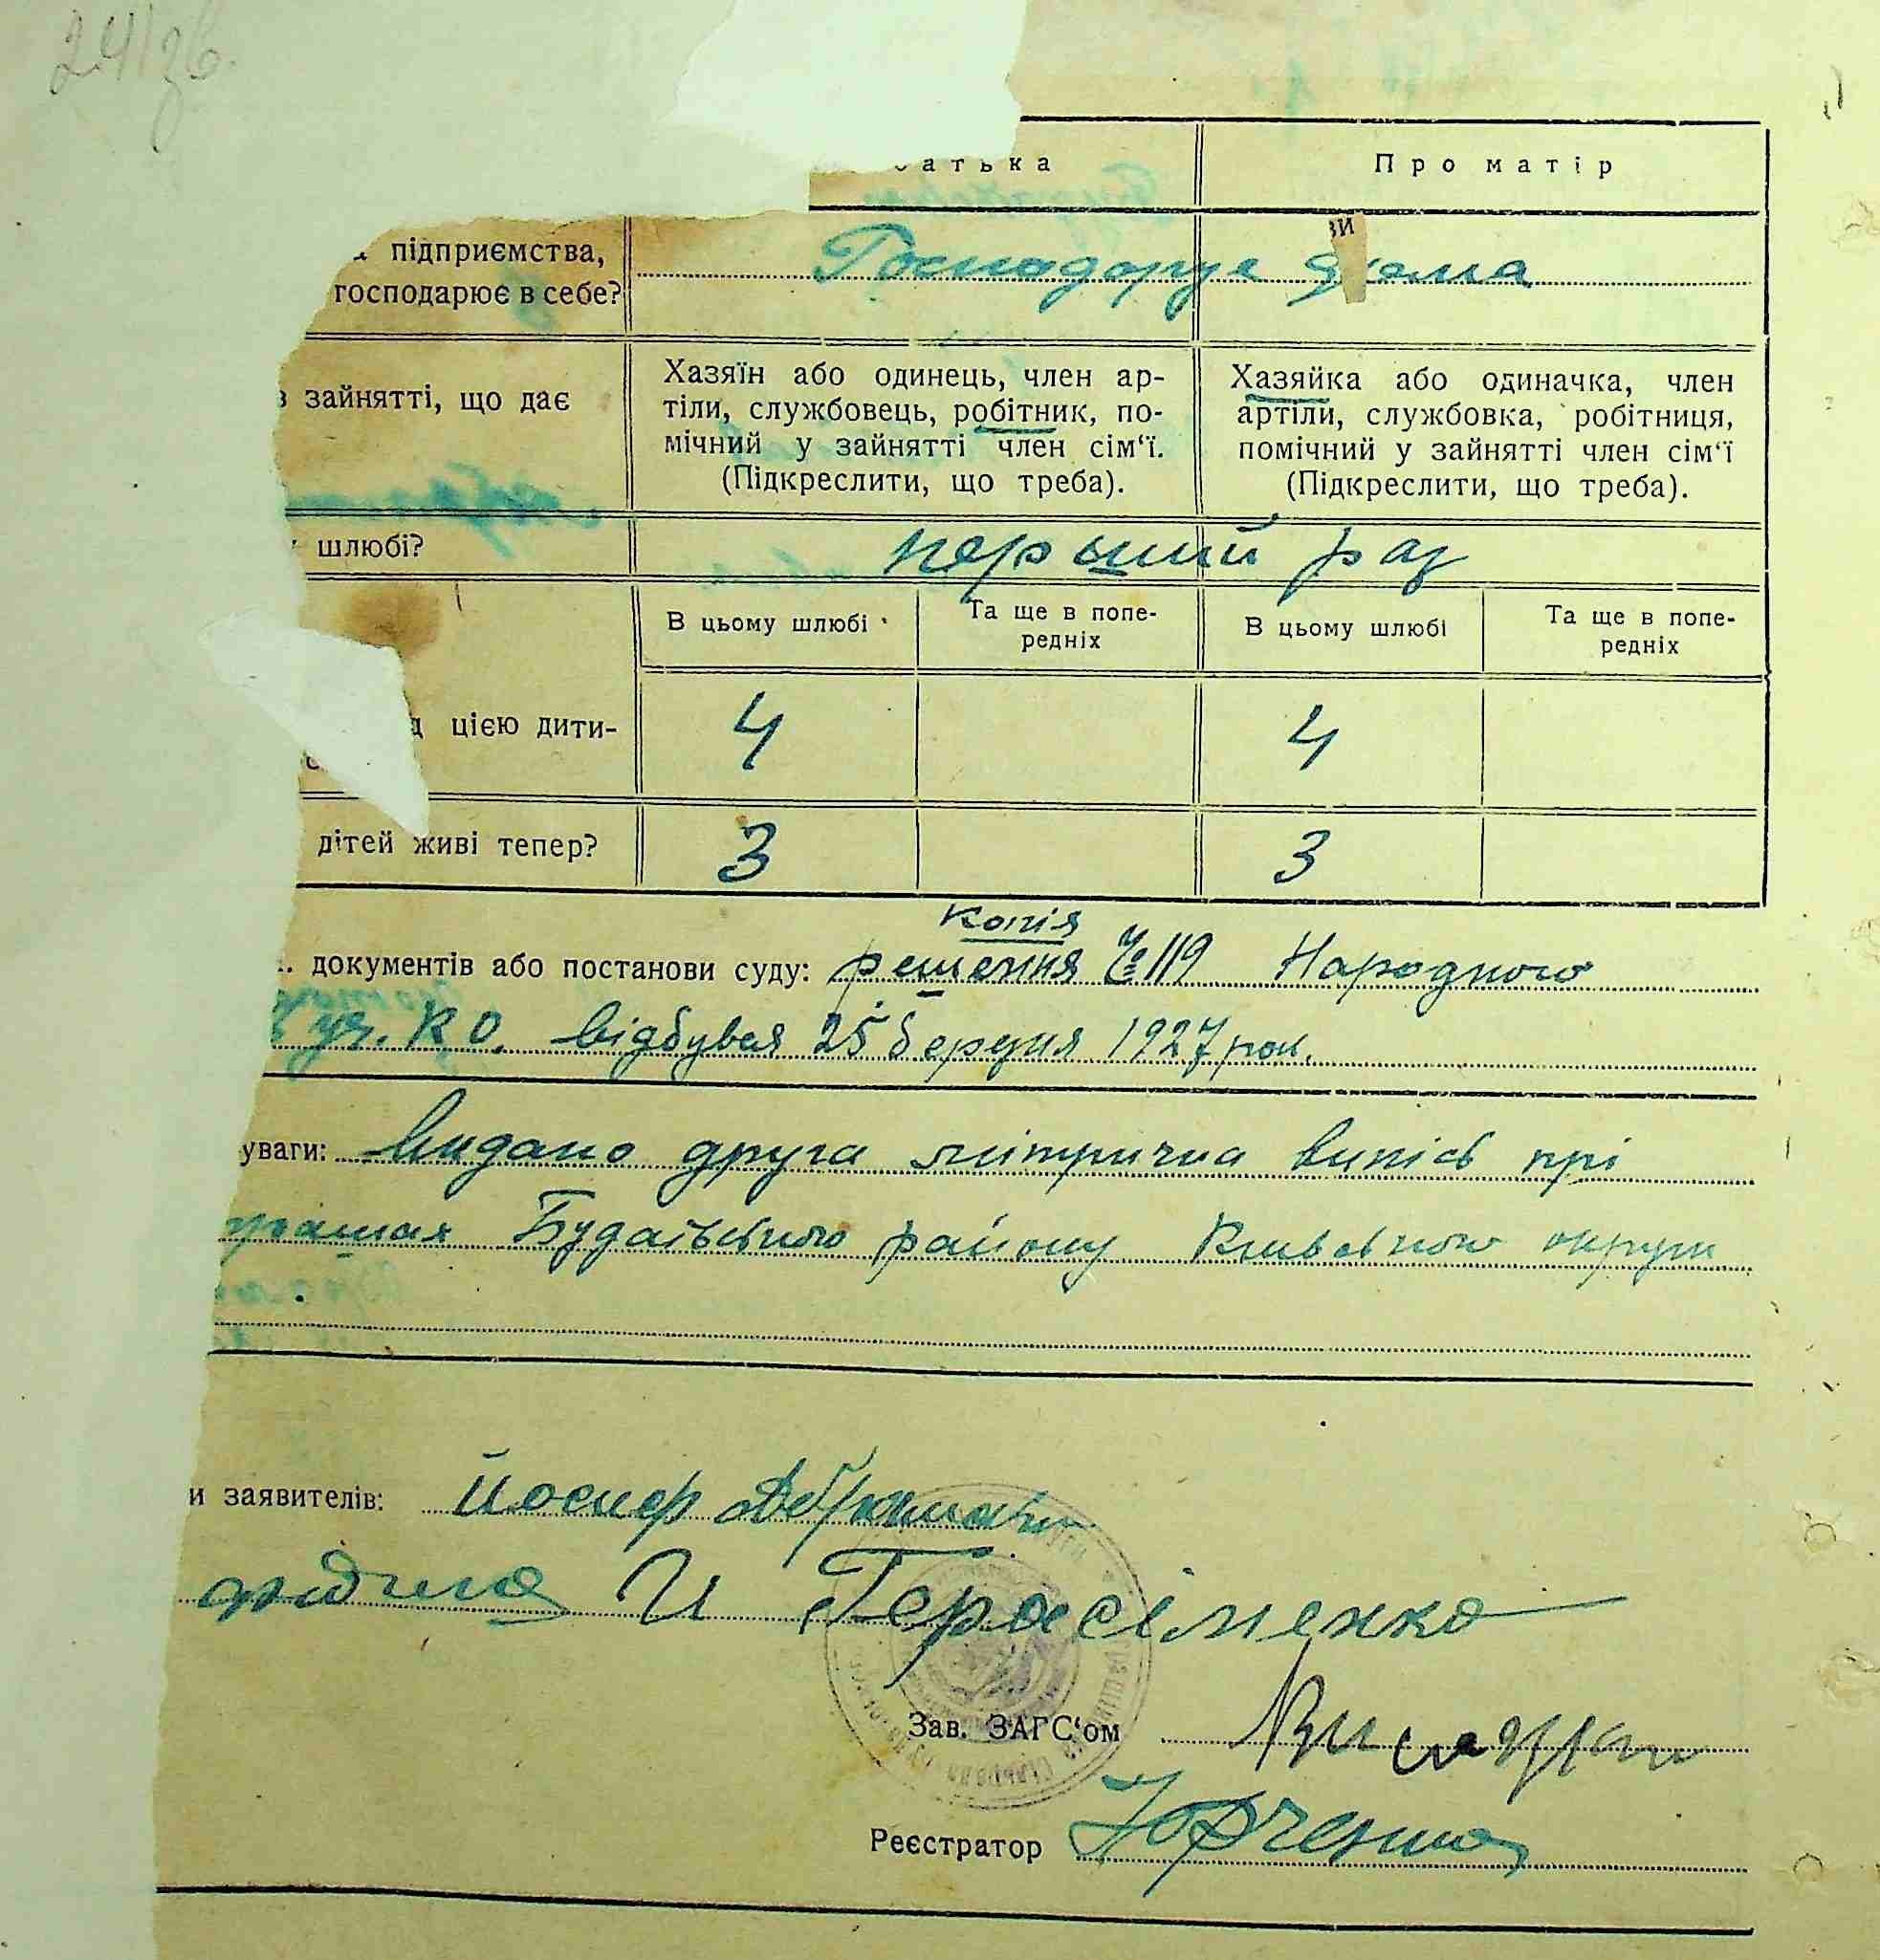 24/зв.
батька Про матір
підприємства,
господарює в себе?
Господарує дома
зайнятті, що дає
Хазяїн або одинець, член ар-
тіли, службовець, робітник, по-
мічний у зайнятті член сім'ї.
(Підкреслити, що треба).
Хазяйка або одиначка, член
артіли, службовка, робітниця,
помічний у зайнятті член сім'ї
(Підкреслити, що треба).
шлюбі? перший раз
В цьому шлюбі
Та ще в попе-
редніх
В цьому шлюбі
Та ще в попе-
редніх
цією дити- 4 4
дітей живі тепер? 3 3
копія
документів або постанови суду: решення № 119 Народного
уч. К.О. відбувся 25 березня 1927 рок.
уваги: Видано друга митрична випісь прі
Будаївського району Київського округи
и заявителів: Йосиф Абрамович
И Герасіменко
Зав. ЗАГС'ом
Реєстратор Юрченко